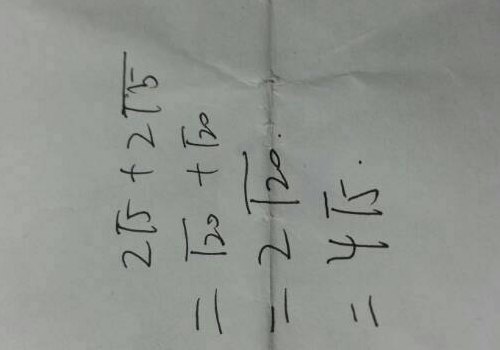 2√5 + 2√5
= √20 + √20
= 2√20.
= 4√5.